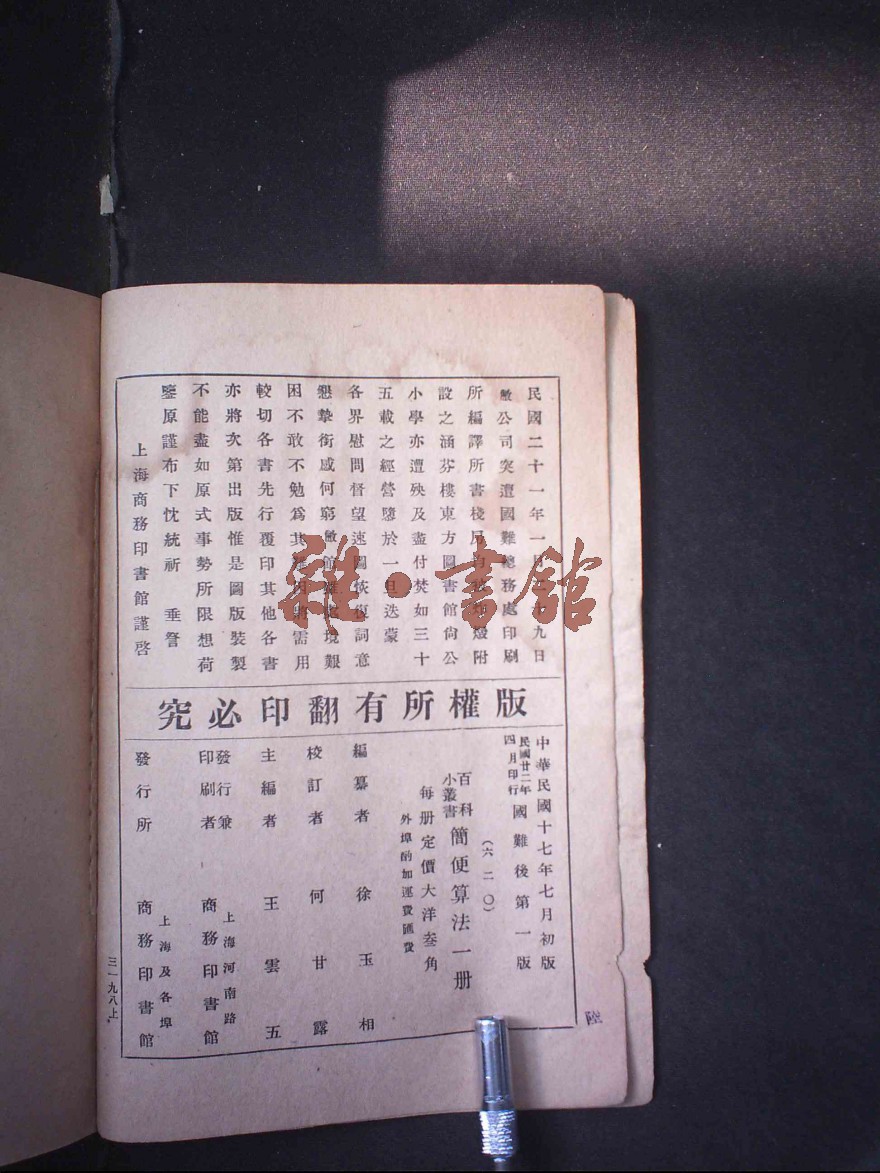 民國二十一年一月二十九日
敝公司突遭國難總務處印刷
所編譯所書棧房均被炸燬附
設之涵芬樓東方圖書館尙公
小學亦遭殃及盡付焚如三十
五載之經營隳於一旦迭蒙
各界慰問督望速圖恢復詞意
懇摯銜感何窮敝館雖處境艱
困不敢不勉爲其難因將需用
較切各書先行覆印其他各書
亦將次第出版惟是圖版裝製
不能盡如原式事勢所限想荷
鑒原謹布下忱統祈 垂詧
上海商務印書館謹啓
版權所有翻印必究
中華民國十七年七月初版
民國廿二年四月印行 國難後第一版
(六二〇)
百科小叢書 簡便算法一册
每册定價大洋叁角
外埠酌加運費匯費
編纂者 徐玉相
校訂者 何甘露
主編者 王雲五
發行兼印刷者 上海河南路 商務印書館
發行所 上海及各埠 商務印書館
三一九八上
陸
雜·書館